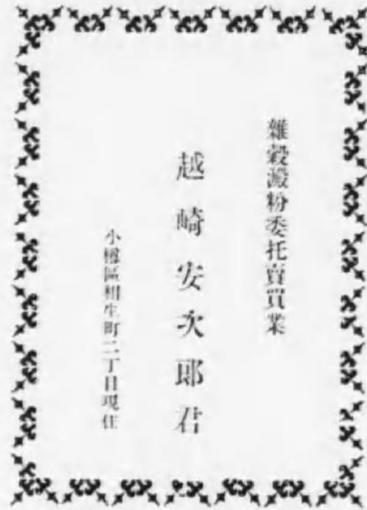 雜穀澱粉委托賣買業
越崎安次郎君
小樽區相生町二丁目現住